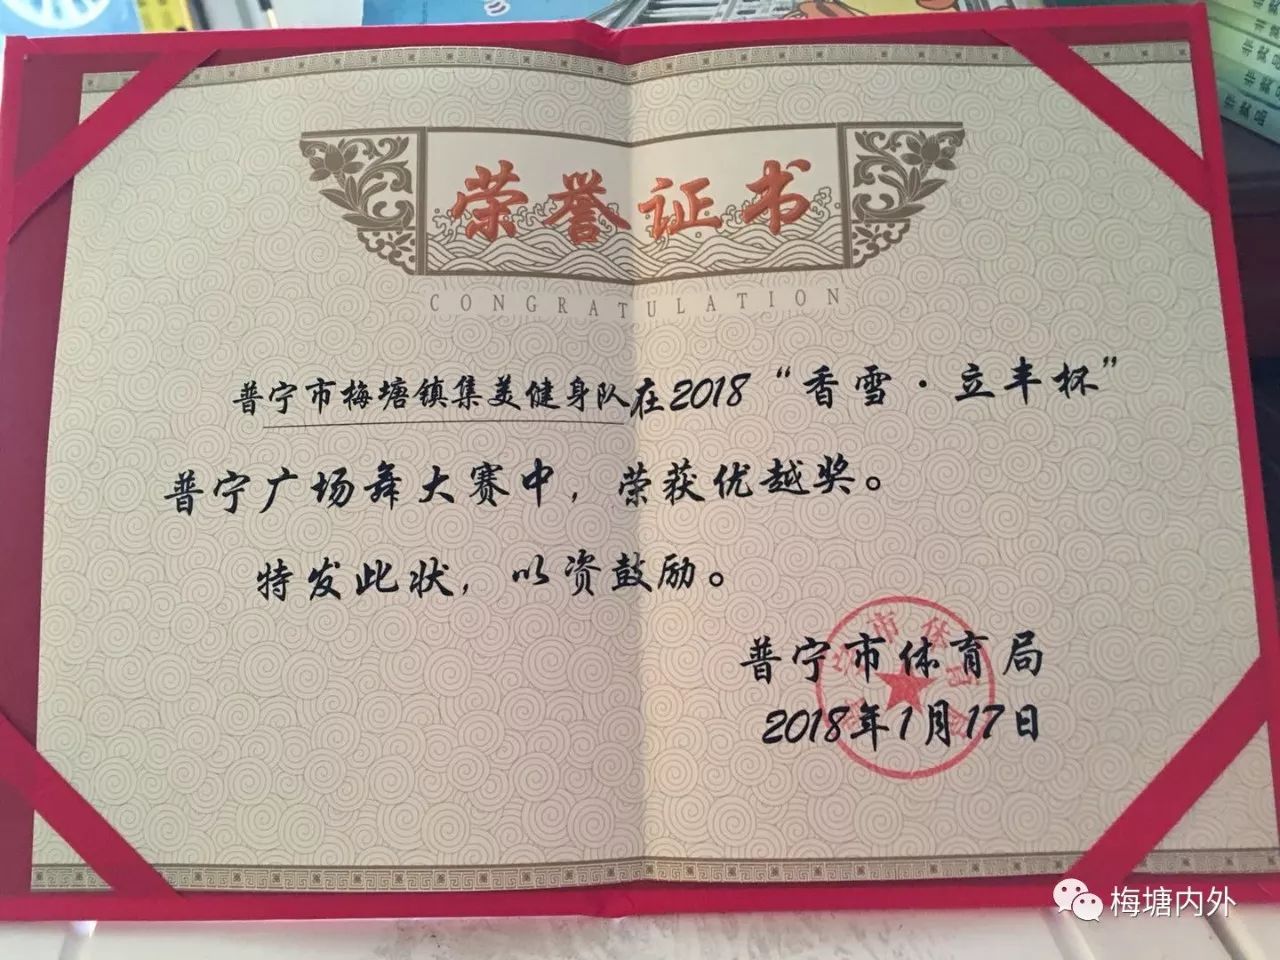 荣誉证书
CONGRATULATION
普宁市梅塘镇集美健身队在2018“香雪·立丰杯”
普宁广场舞大赛中，荣获优越奖。
特发此状，以资鼓励。
普宁市体育局
2018年1月17日
普宁市体育局
梅塘内外